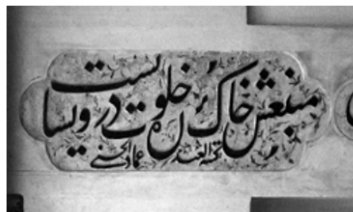 منبعش خاک در خلوت درویشانست
العبد عماد الحسنی